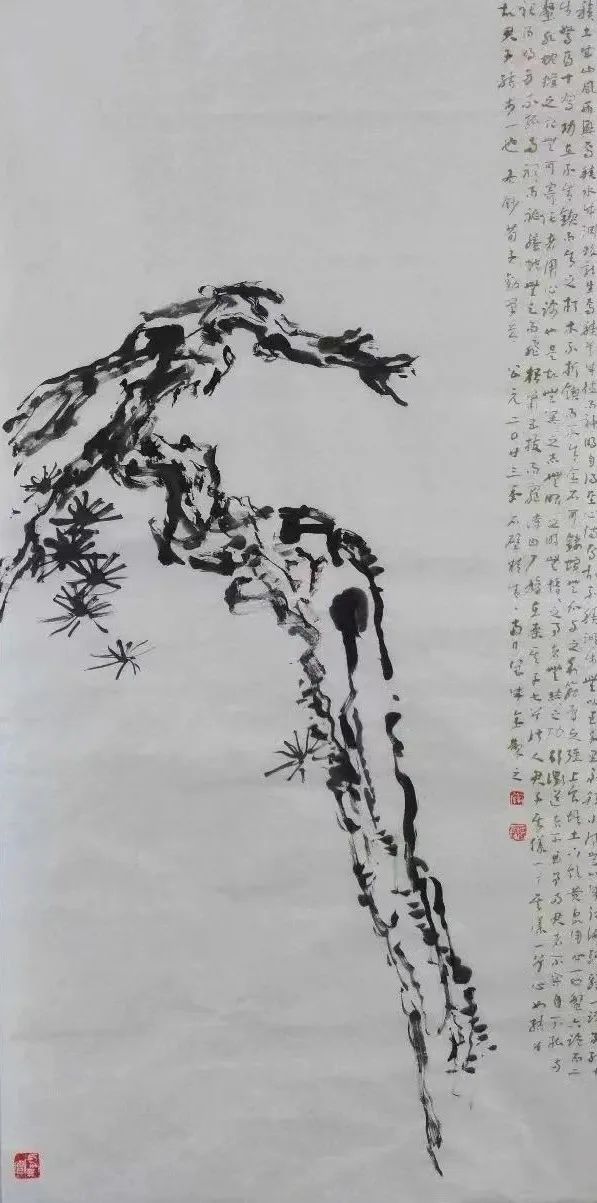 積土成山風雨興焉積水成淵蛟龍生焉積善成德而神明自得聖心備焉故不積跬步無以至千里不積小流無以成江海騏驥一躍不能十
步駑馬十駕功在不舍鍥而舍之朽木不折鍥而不舍金石可鏤螾無爪牙之利筋骨之強上食埃土下飲黃泉用心一也蟹六跪而二
螯非蛇蟺之穴無可寄託者用心躁也是故無冥冥之志無昭昭之明無惛惛之事無赫赫之功行衢道者不至事兩君者不容目不能兩
視而明耳不能兩聽而聰螣蛇無足而飛梧鼠五技而窮詩曰尸鳩在桑其子七兮淑人君子其儀一兮其儀一兮心如結兮
故君子結於一也 荀子勸學 公元二〇廿三